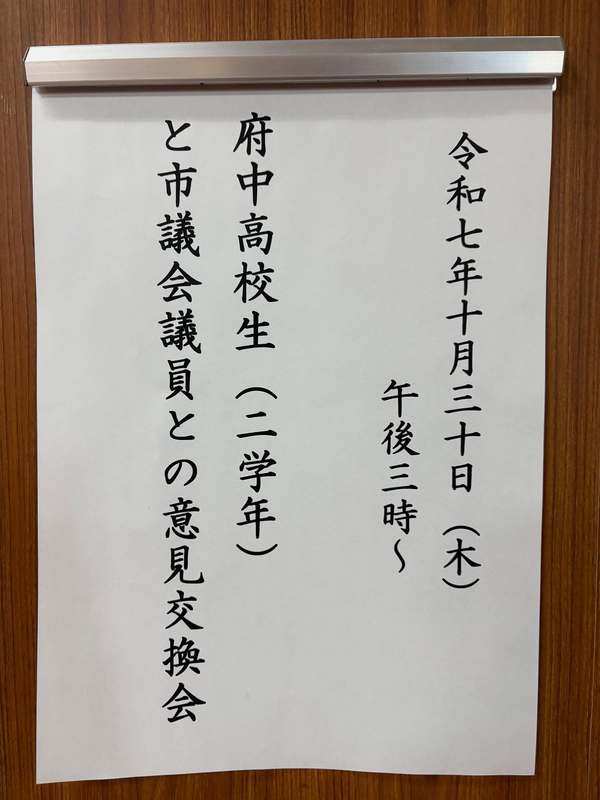 令和七年十月三十日（木）
午後三時～
府中高校生（二学年）
と市議会議員との意見交換会